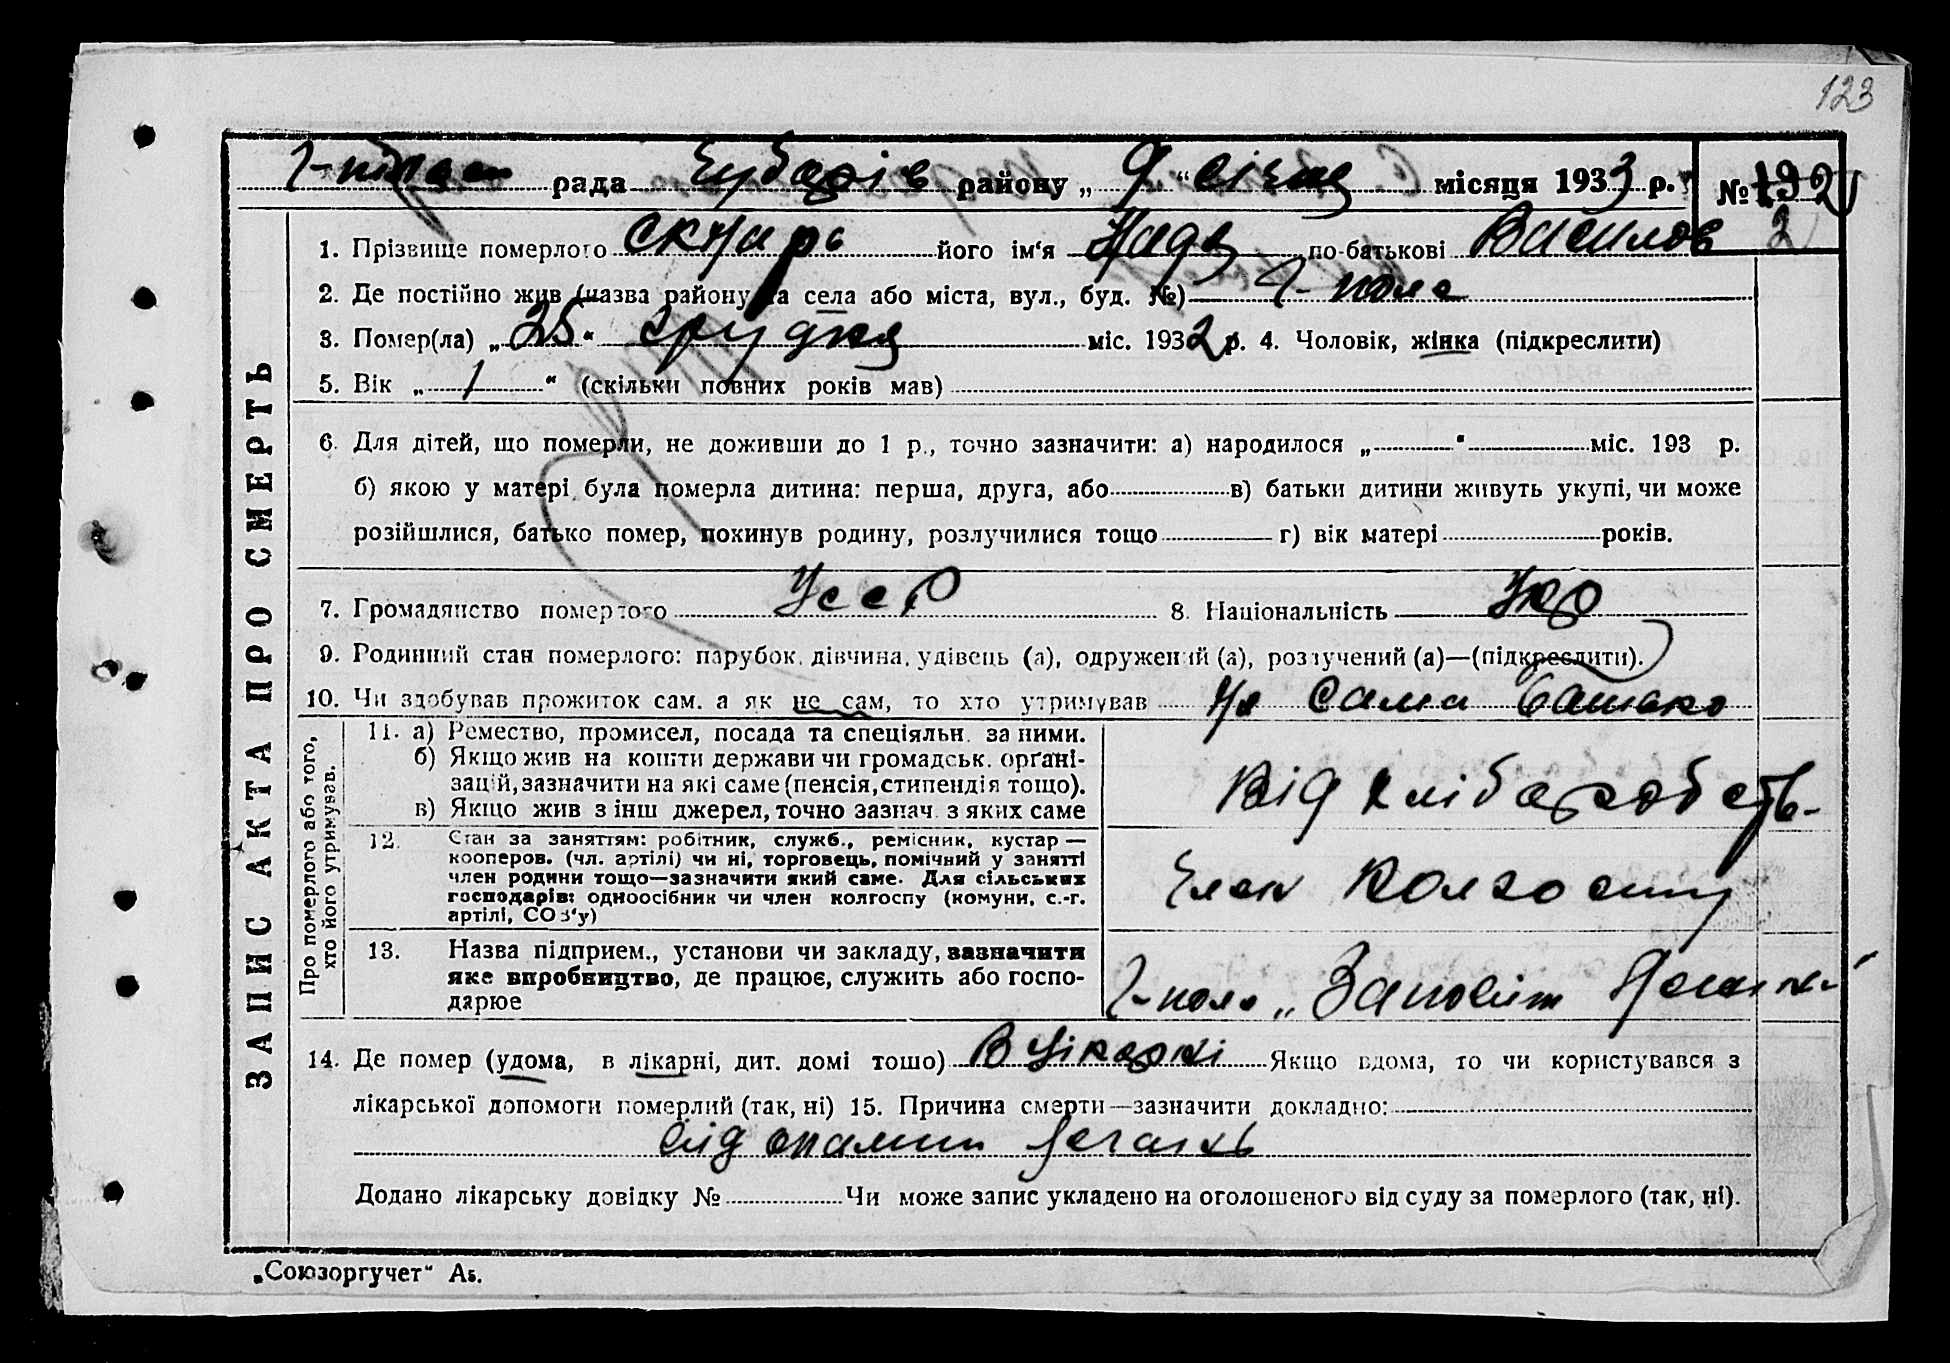 123
рада Чубарів району „ 9 “ січня місяця 1933 р. № 132
2
1. Прізвище померлого Скнарь його ім‘я Надя по-батькові Василов
2. Де постійно жив (назва району та села або міста, вул., буд. №) Г-поле
3. Помер(ла) „ 25 “ грудня міс. 1932 р. 4. Чоловік, жінка (підкреслити)
5. Вік „ 1 “ (скільки повних років мав)
6. Для дітей, що померли, не доживши до 1 р., точно зазначити: а) народилося „ “ міс. 193 р.
б) якою у матері була померла дитина: перша, друга, або в) батьки дитини живуть укупі, чи може
розійшлися, батько помер, покинув родину, розлучилися тощо г) вік матері років.
7. Громадянство померлого УССР 8. Національність Укр
9. Родинний стан померлого: парубок, дівчина, удівець (а), одружений (а), розлучений (а)—(підкреслити).
10. Чи здобував прожиток сам, а як не сам, то хто утримував Не сама батько
ЗАПИС АКТА ПРО СМЕРТЬ
Про померлого або того, хто його утримував.
11. а) Ремество, промисел, посада та спеціяльн. за ними.
б) Якщо жив на кошти держави чи громадськ. орґані-
зацій, зазначити на які саме (пенсія, стипендія тощо).
в) Якщо жив з інш джерел, точно зазнач. з яких саме
Від хліборобств-
12. Стан за заняттям: робітник, служб., ремісник, кустар —
кооперов. (чл. артілі) чи ні, торговець, помічний у занятті
член родини тощо—зазначити який саме. Для сільських
господарів: одноосібник чи член колгоспу (комуни, с.-г.
артілі, СОЗ‘у)
Член колгоспу
13. Назва підприєм., установи чи закладу, зазначити
яке виробництво, де працює, служить або госпо-
дарює
Г-поле „Заповіт
14. Де помер (удома, в лікарні, дит. домі тощо) В лікарні Якщо вдома, то чи користувався з
лікарської допомоги померлий (так, ні) 15. Причина смерти—зазначити докладно:
Від опалини легких
Додано лікарську довідку № Чи може запис укладено на оголошеного від суду за померлого (так, ні).
„Союзоргучет“ А5.